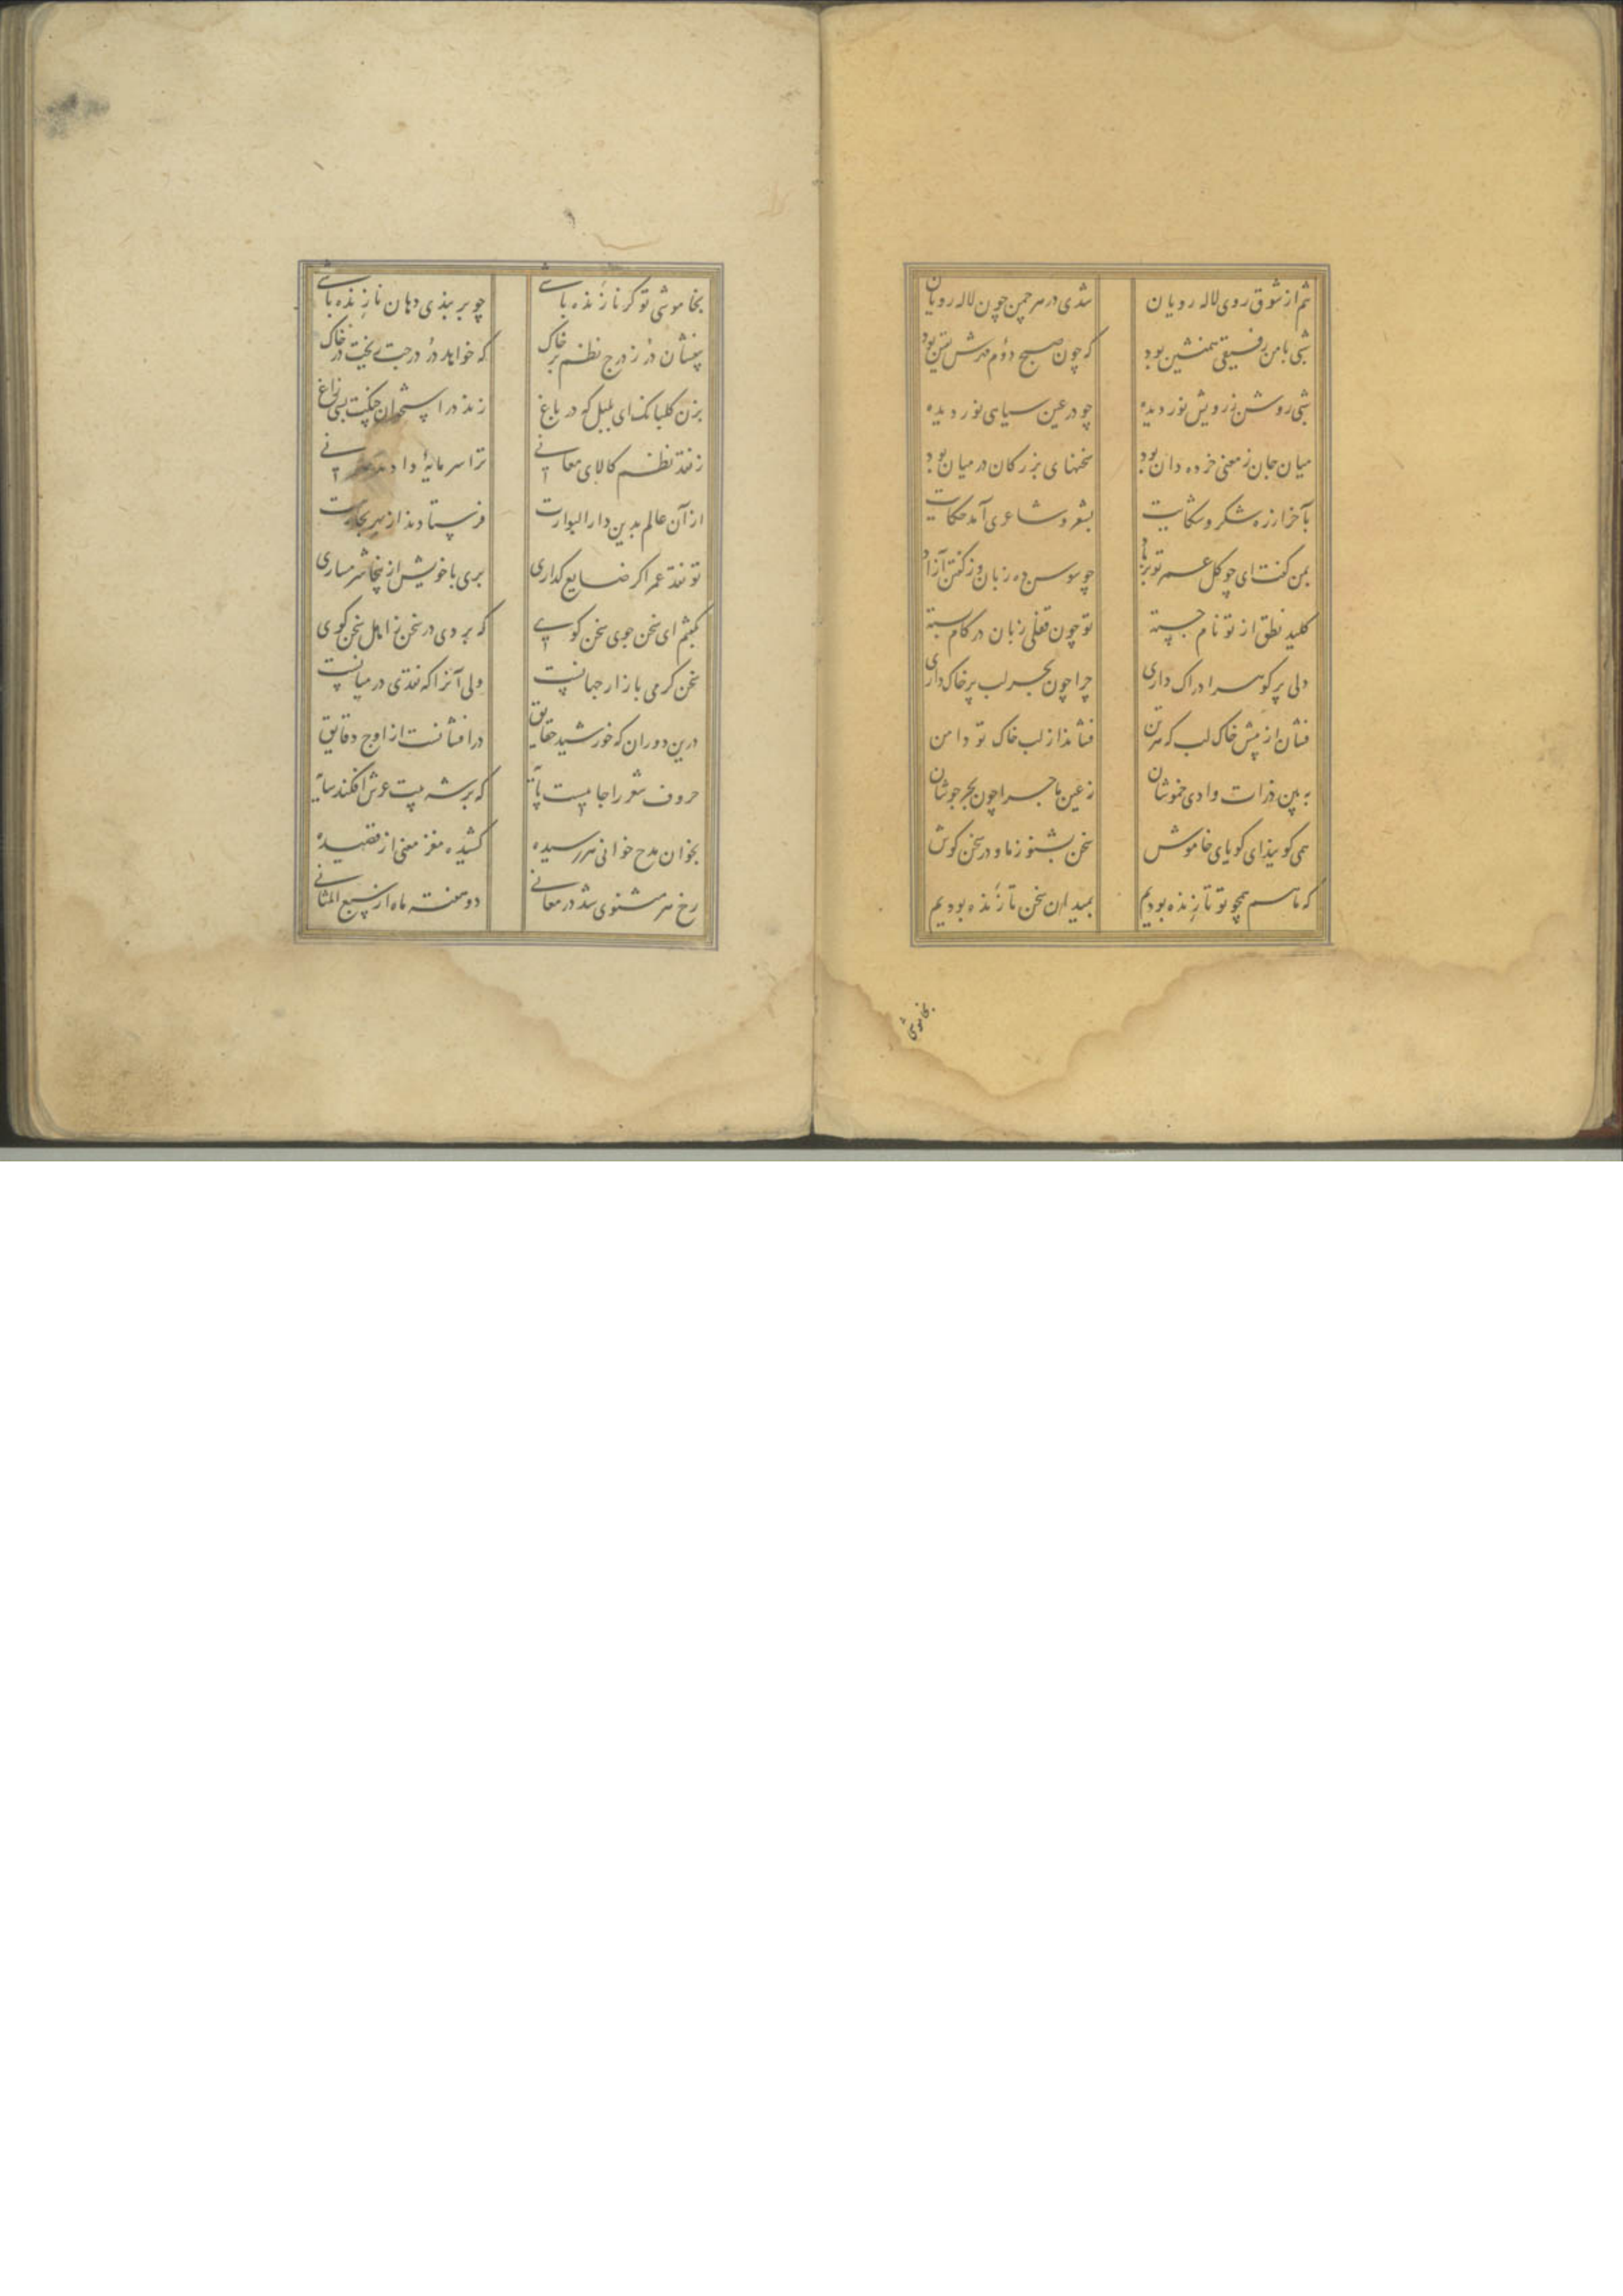 تنم از شوق روی لاله رویان شدی در هر چمن چون لاله رویان
شبی با من رفیقی همنشین بود که چون صبح دوم مهرش بود
شبی روشن ز رویش نور دیده چو در عین سیاهی نور دیده
میان جان ز معنی خرده دان بود سخنهای بزرکان در میان بود
بآخر از ره شکر و شکایت بشعر و شاعری آمد حکایت
بمن کفت ای چو کل عمر تو بر باد چو سوسن ده زبان وز کفتن آزاد
کلید نطق از تو نام جسته تو چون قفلی زبان در کام بسته
دلی پر کوهر ادراک داری چرا چون بحر لب پر خاک داری
فشان از پیش خاک لب که فشاند از لب خاک تو دامن
به بین ذرات وادی خموشان ز عین ماجرا چون بحر جوشان
همی کویند ای کویای خاموش سخن بشنو ز ما و در سخن کوش
که ما هم همچو تو تا زنده بودیم بمیدان سخن تازنده بودیم
بخاموشی
بخاموشی تو کر نازنده باشی چو بر بندی دهان نازنده باشی
بیفشان در ز درج نظم بر خاک که خواهد در درجت ریخت در خاک
بزن کلبانک ای بلبل که در باغ زند در استخوان بسی زاغ
ز نقد نظم کالای معانی ترا سرمایهٔ دادند
از آن عالم بدین دار البوارت فرستادند از بهر تجارت
تو نقد عمر اکر ضایع کذاری بری با خویش از پنجا شرمساری
بکفتم ای سخن جوی سخن کوی که بردی در سخن ز اهل سخن کوی
سخن کرمی بازار جهانست ولی آنرا که نقدی در میانست
درین دوران که خورشید حقایق درافشانست از اوج دقایق
حروف شعر را جاییست پایه که بر شه بیت عرش افکند سایه
بخوان مدح خوانی هر رسیده کشیده مغز معنی از قصیده
رخ هر مثنوی شد در معانی دو هفته ماه از سبع المثانی